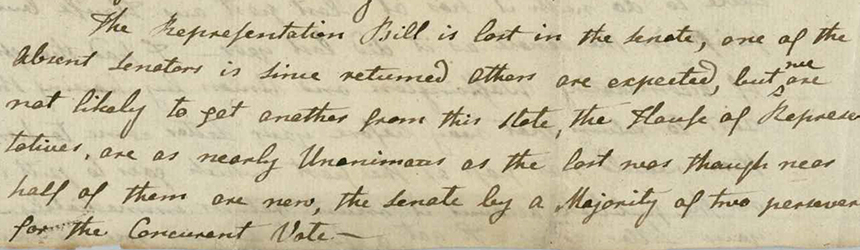 The Representation Bill is lost in the Senate, one of the
absent Senators is since returned others are expected, but we are
not likely to get another from this State, the House of Represen
tatives, are as nearly Unanimous as the last was though near
half of them are new, the Senate by a Majority of two persever
for the Concurent Vote —